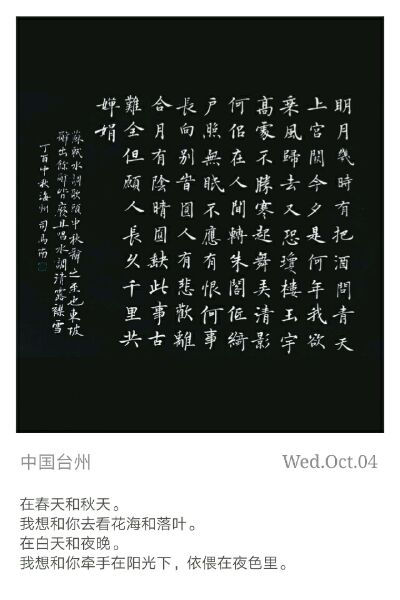 明月幾時有把酒問青天
上宮闕今夕是何年我欲
乘風歸去又恐瓊樓玉宇
高處不勝寒起舞弄清影
何佀在人間轉朱閣低綺
戶照無眠不應有恨何事
長向別旹圓人有悲歡離
合月有陰晴圓缺此事古
難全但願人長久千里共
嬋娟
蘇軾水調歌頭中秋詞之也東坡
詞出餘詞皆廢且唱水調清露雪
丁酉中秋海州司馬
中国台州
Wed.Oct.04
在春天和秋天。
我想和你去看花海和落叶。
在白天和夜晚。
我想和你牵手在阳光下，依偎在夜色里。